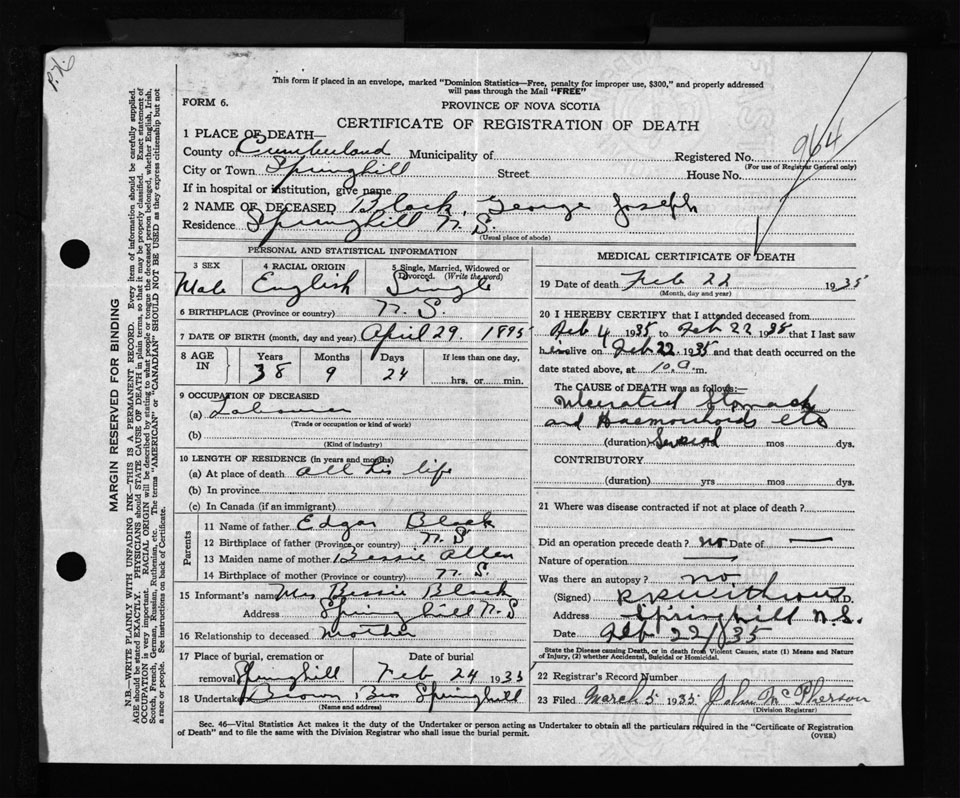 P.K.
This form if placed in an envelope, marked "Dominion Statistics—Free, penalty for improper use, $300," and properly addressed
will pass through the Mail "FREE"
FORM 6.
PROVINCE OF NOVA SCOTIA
CERTIFICATE OF REGISTRATION OF DEATH
964
1 PLACE OF DEATH—
County of Cumberland Municipality of Registered No.
(For use of Registrar General only)
City or Town Springhill Street House No.
If in hospital or institution, give name
2 NAME OF DECEASED Black, George Joseph
Residence Springhill N.S.
(Usual place of abode)
PERSONAL AND STATISTICAL INFORMATION
3 SEX 4 RACIAL ORIGIN 5 Single, Married, Widowed or
Divorced. (Write the word)
Male English Single
6 BIRTHPLACE (Province or country) N.S.
7 DATE OF BIRTH (month, day and year) April 29. 1895
8 AGE IN Years Months Days If less than one day,
38 9 24 hrs. or min.
9 OCCUPATION OF DECEASED
(a) Labourer
(Trade or occupation or kind of work)
(b)
(Kind of industry)
10 LENGTH OF RESIDENCE (in years and months)
(a) At place of death all his life
(b) In province
(c) In Canada (if an immigrant)
Parents
11 Name of father Edgar Black
12 Birthplace of father (Province or country) N.S
13 Maiden name of mother Bessie Allen
14 Birthplace of mother (Province or country) N.S.
15 Informant's name Mrs Bessie Black
Address Springhill N.S
16 Relationship to deceased Mother
17 Place of burial, cremation or Date of burial
removal Springhill Feb 24 1935
18 Undertaker Brown Bros Springhill
(Name and address)
MEDICAL CERTIFICATE OF DEATH
19 Date of death Feb 22 1935
(Month, day and year)
20 I HEREBY CERTIFY that I attended deceased from
Feb 4 1935 to Feb 22 1935 that I last saw
him alive on Feb 22. 1935 and that death occurred on the
date stated above, at 10.a.m.
The CAUSE of DEATH was as follows:—
Ulcerated Stomach
and Haemorrhoids etc
(duration) Several yrs mos dys.
CONTRIBUTORY
(duration) yrs mos dys.
21 Where was disease contracted if not at place of death?
Did an operation precede death? no Date of —
Nature of operation —
Was there an autopsy? no
(Signed) M.D.
Address Springhill N.S.
Date Feb 22/35
State the Disease causing Death, or in death from Violent Causes, state (1) Means and
Nature of Injury, (2) whether Accidental, Suicidal or Homicidal.
22 Registrar's Record Number
23 Filed March 5 1935 John McPherson
(Division Registrar)
Sec. 46—Vital Statistics Act makes it the duty of the Undertaker or person acting as Undertaker to obtain all the particulars required in the "Certificate of Registration
of Death" and to file the same with the Division Registrar who shall issue the burial permit.
(OVER)
MARGIN RESERVED FOR BINDING
N.B.—WRITE PLAINLY WITH UNFADING INK—THIS IS A PERMANENT RECORD. Every item of information should be carefully supplied.
AGE should be stated EXACTLY. PHYSICIANS should STATE CAUSE OF DEATH in plain terms, so that it may be properly classified. Exact statement of
OCCUPATION is very important. RACIAL ORIGIN will be described by stating to what people or tongue the deceased person belonged, whether English, Irish,
Scotch, French, German, Russian, Ruthenian, etc. The terms "AMERICAN" or "CANADIAN" SHOULD NOT BE USED as they express citizenship but not
a race or people. See instructions on back of Certificate.